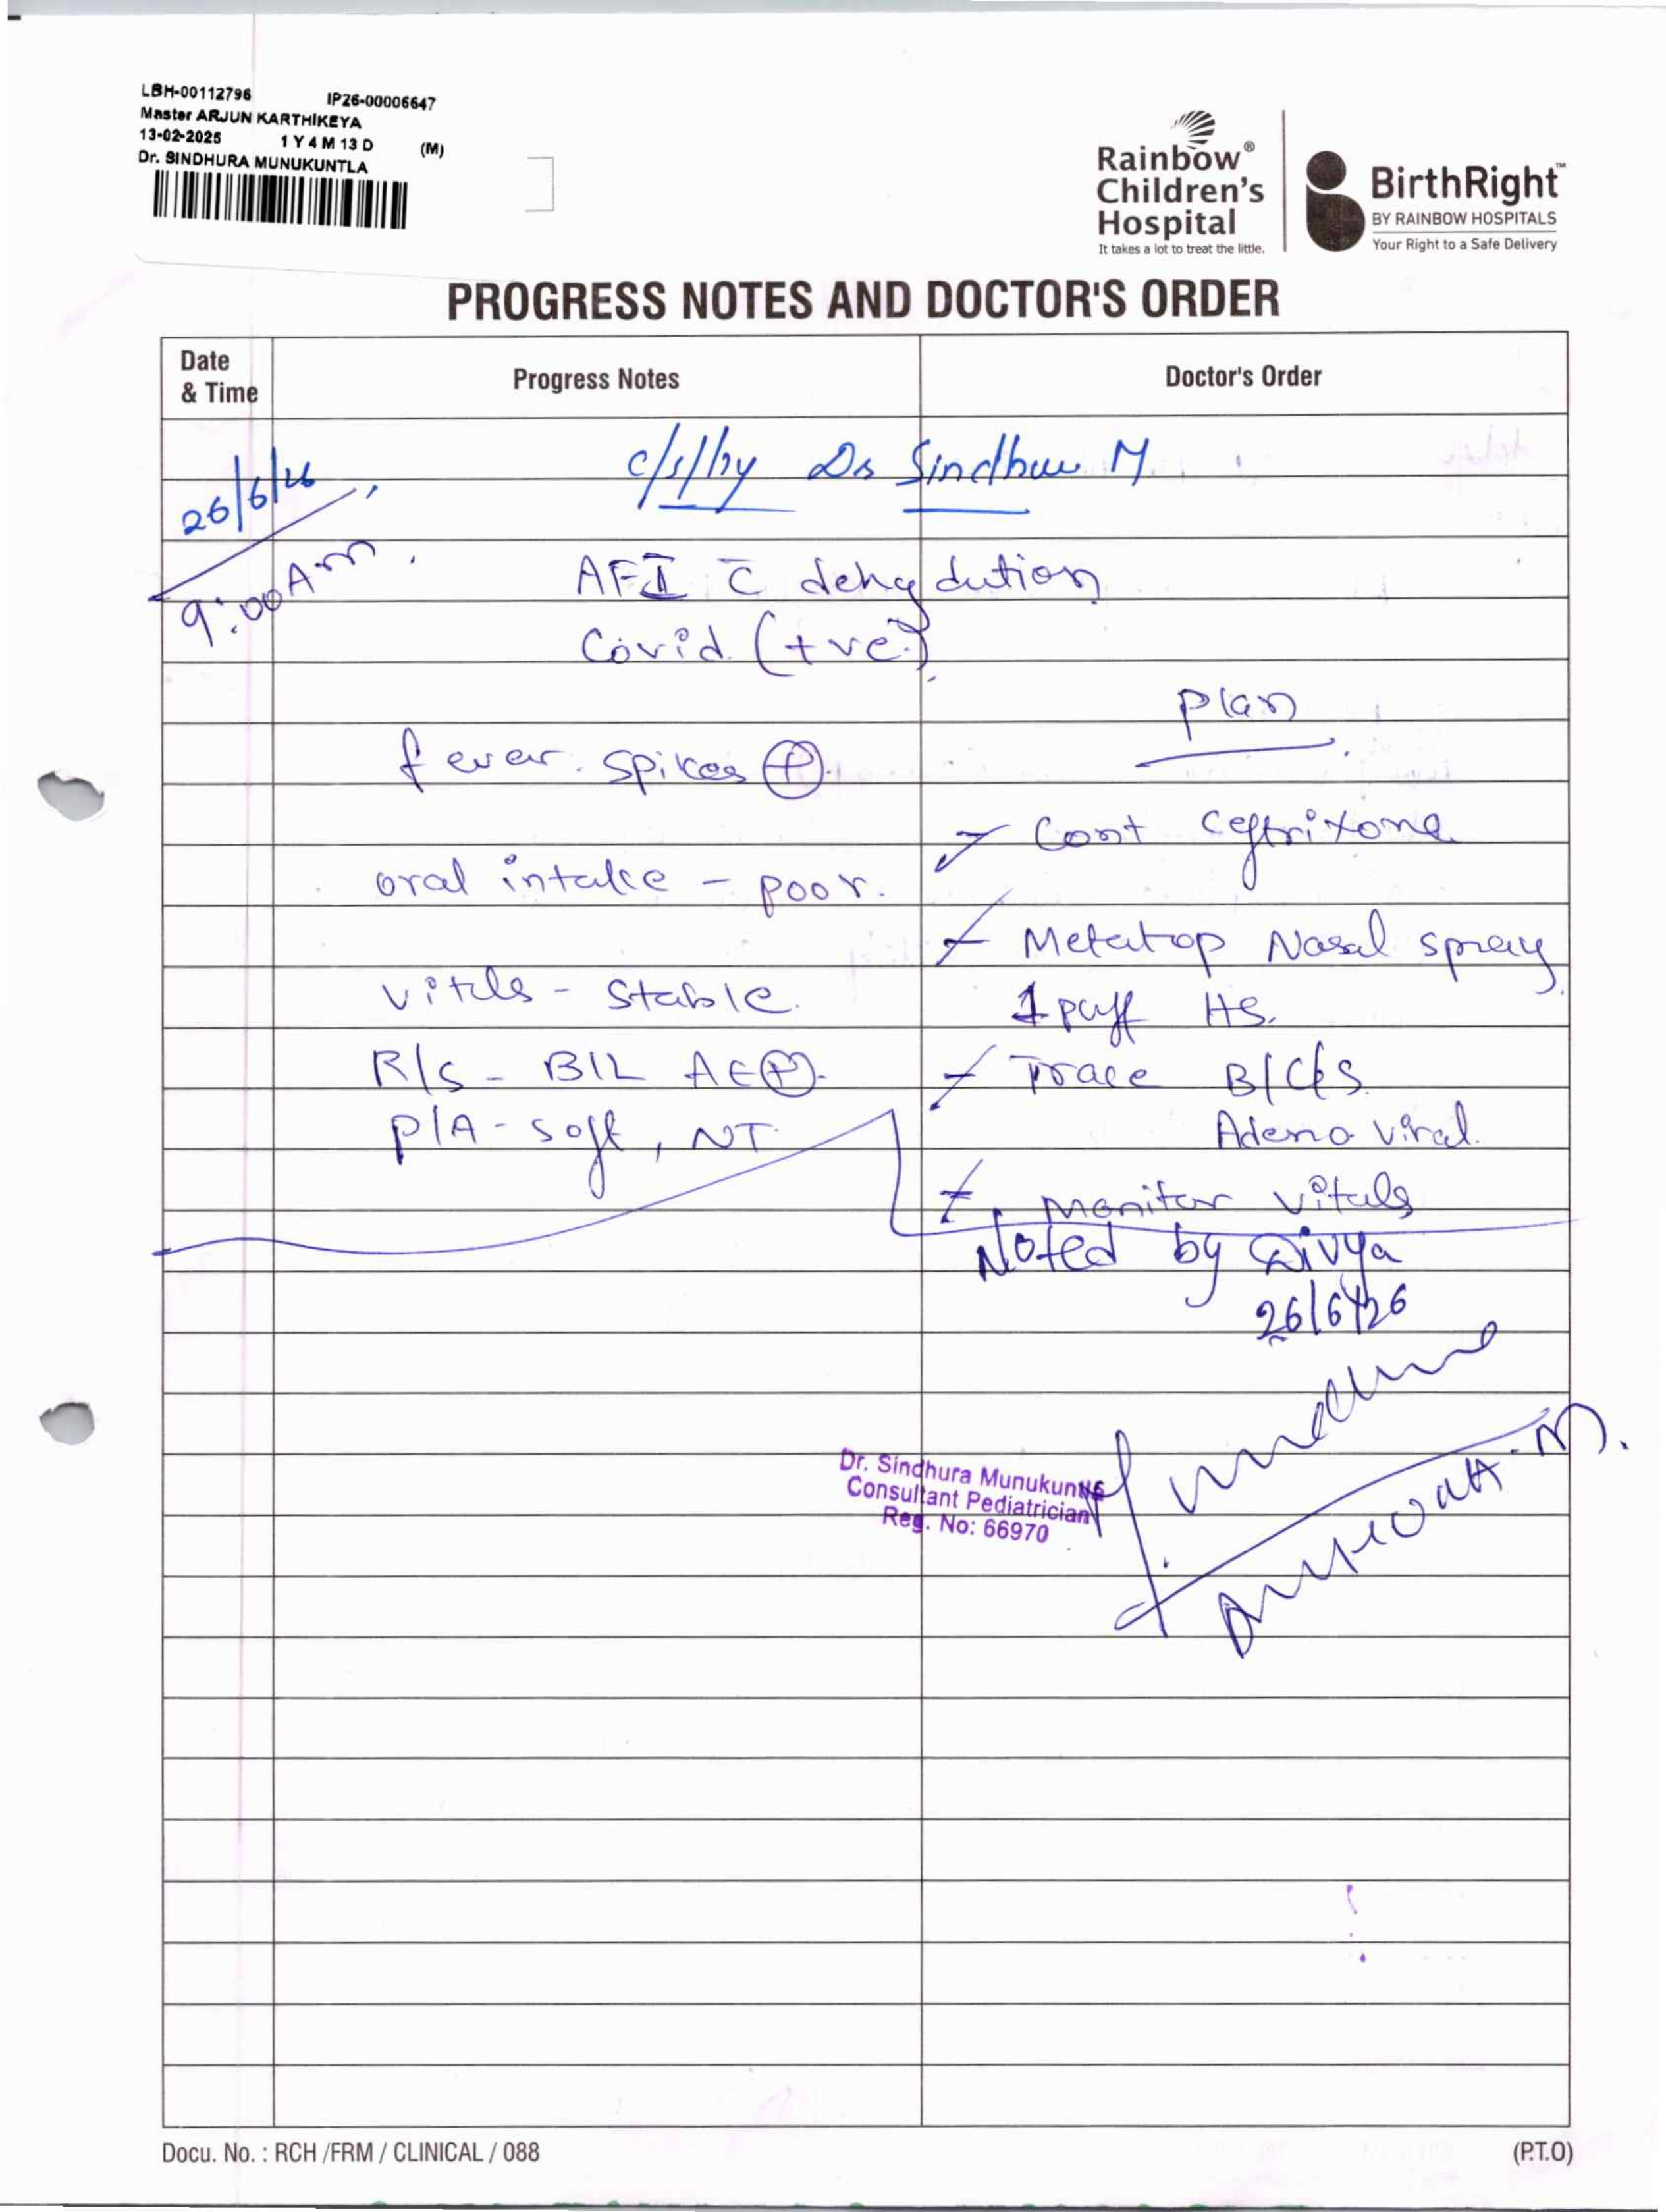 LBH-00112796 IP26-00006647
Master ARJUN KARTHIKEYA
13-02-2025 1 Y 4 M 13 D (M)
Dr. SINDHURA MUNUKUNTLA
Rainbow®
Children's
Hospital
It takes a lot to treat the little.
BirthRight™
BY RAINBOW HOSPITALS
Your Right to a Safe Delivery
PROGRESS NOTES AND DOCTOR'S ORDER
Date
& Time
Progress Notes
Doctor's Order
26/6/26
9:00 Am
c/s/by Dr Sindhu M
AFI c̄ dehydution
Covid (+ve)
Plan
fever spikes (+)
Cont Ceftrixone
oral intake - poor.
Metatop Nasal spray
1 puff HS.
vitals - stable.
R/S - B/L AE(+)
Trace B/C/S
P/A - soft, NT
Adeno viral
Monitor vitals
Noted by Divya
26/6/26
Dr. Sindhura Munukuntla
Consultant Pediatrician
Reg. No: 66970
Docu. No. : RCH /FRM / CLINICAL / 088
(P.T.O)